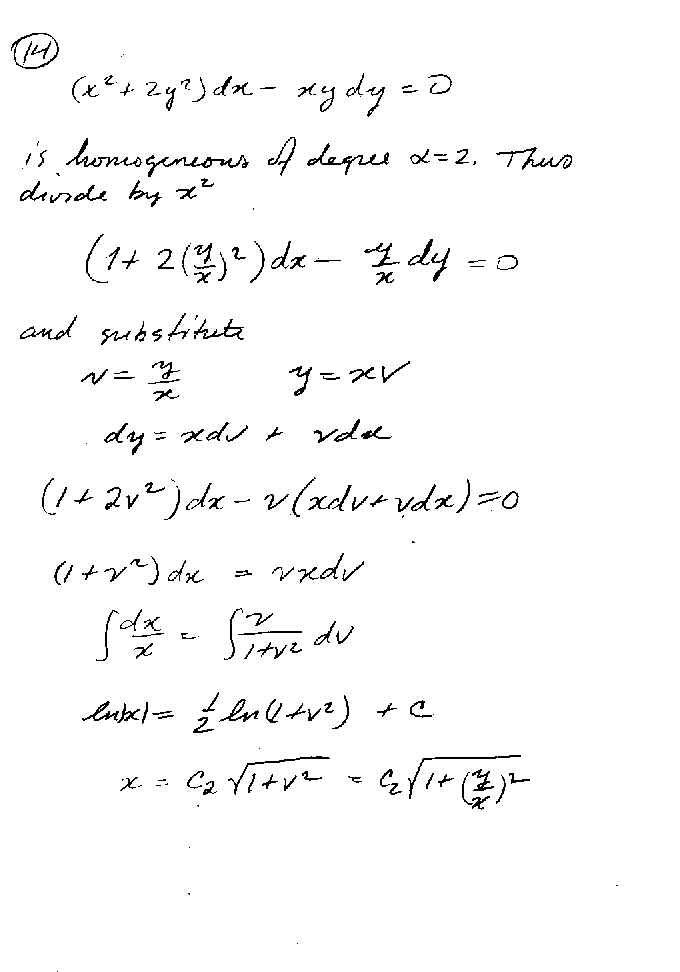 14
(x² + 2y²) dx − xy dy = 0
is homogeneous of degree α = 2. Thus
divide by x²
(1 + 2(y/x)²) dx − y/x dy = 0
and substitute
v = y/x   y = xv
dy = xdv + vdx
(1 + 2v²) dx − v(xdv + vdx) = 0
(1 + v²) dx = vxdv
∫ dx/x = ∫ v/(1+v²) dv
ln|x| = ½ ln(1+v²) + C
x = C₂ √(1+v²) = C₂ √(1+(y/x)²)